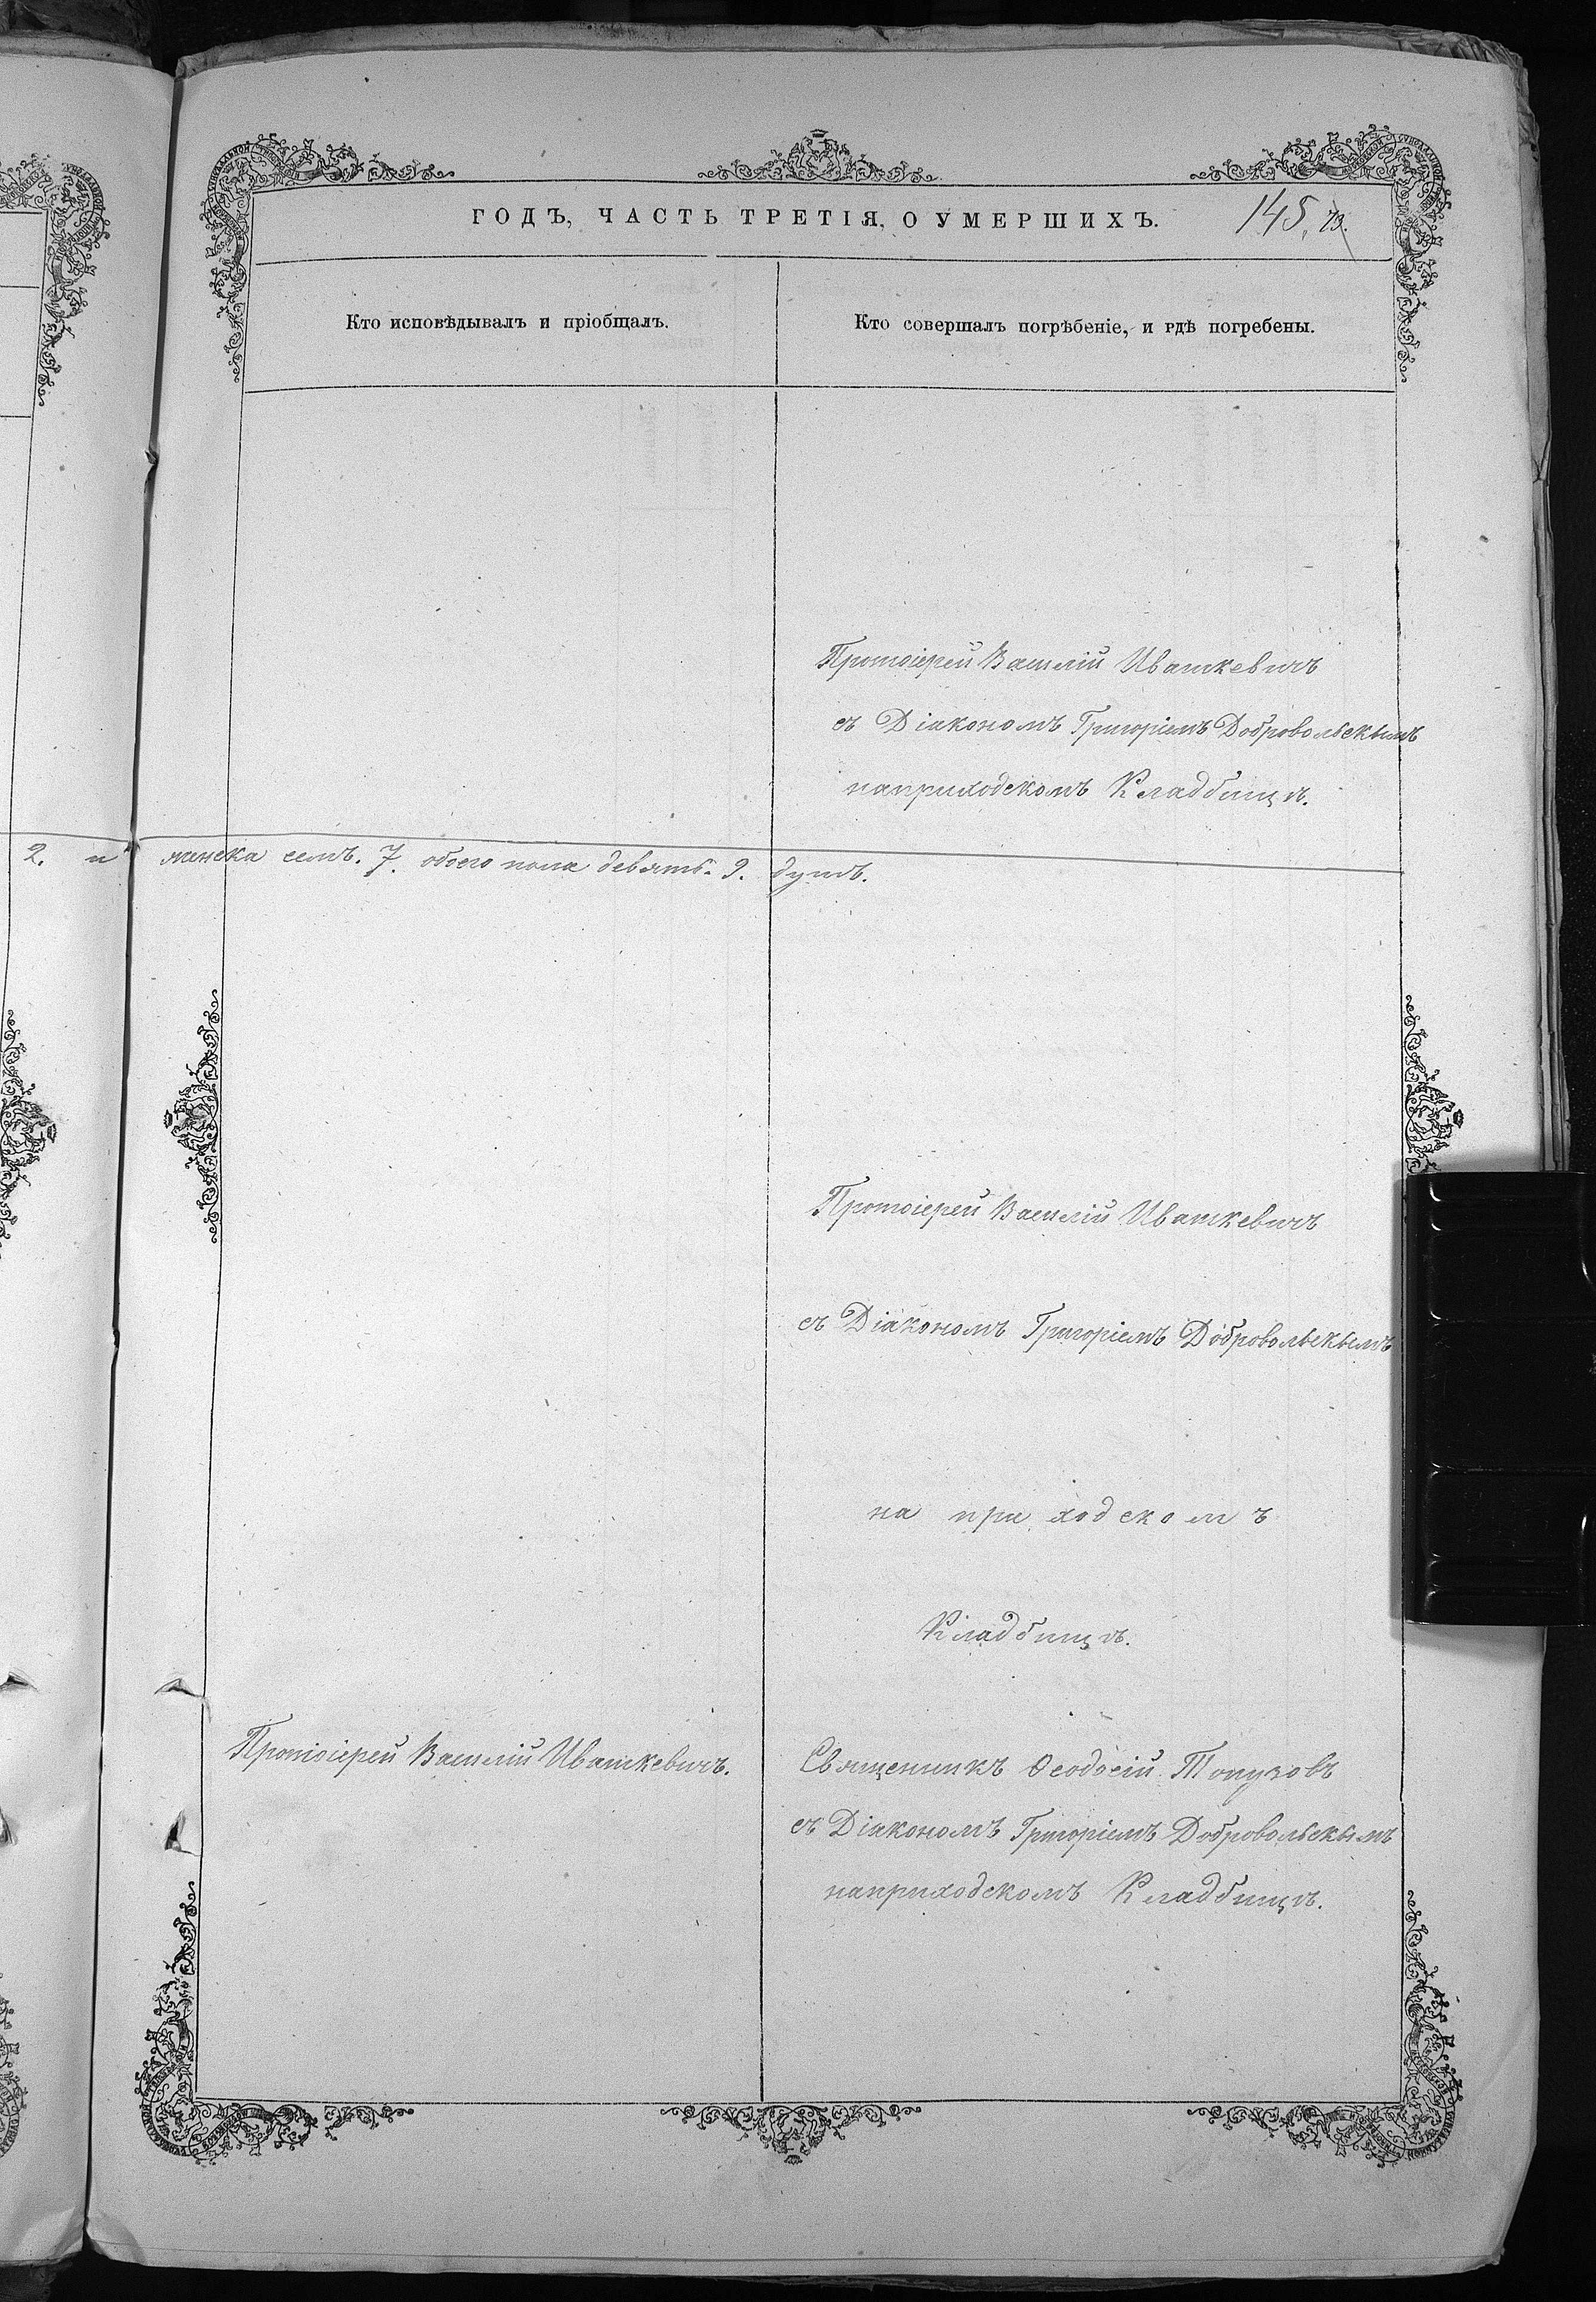 ГОДЪ, ЧАСТЬ ТРЕТІЯ, О УМЕРШИХЪ.
145, 73.
Кто исповѣдывалъ и пріобщалъ.
Кто совершалъ погрѣбеніе, и гдѣ погребены.
Протоіерей Василій Ивашкевичъ
съ Діакономъ Григоріемъ Добровольскимъ
наприходскомъ Кладбищѣ.
2. и женска семъ. 7. обоего пола девять. 9. душъ.
Протоіерей Василій Ивашкевичъ
съ Діакономъ Григоріемъ Добровольскимъ
на приходскомъ
Кладбищѣ.
Протоіерей Василій Ивашкевичъ.
Священникъ Ѳеодосій Топузовъ
съ Діакономъ Григоріемъ Добровольскимъ
наприходскомъ Кладбищѣ.